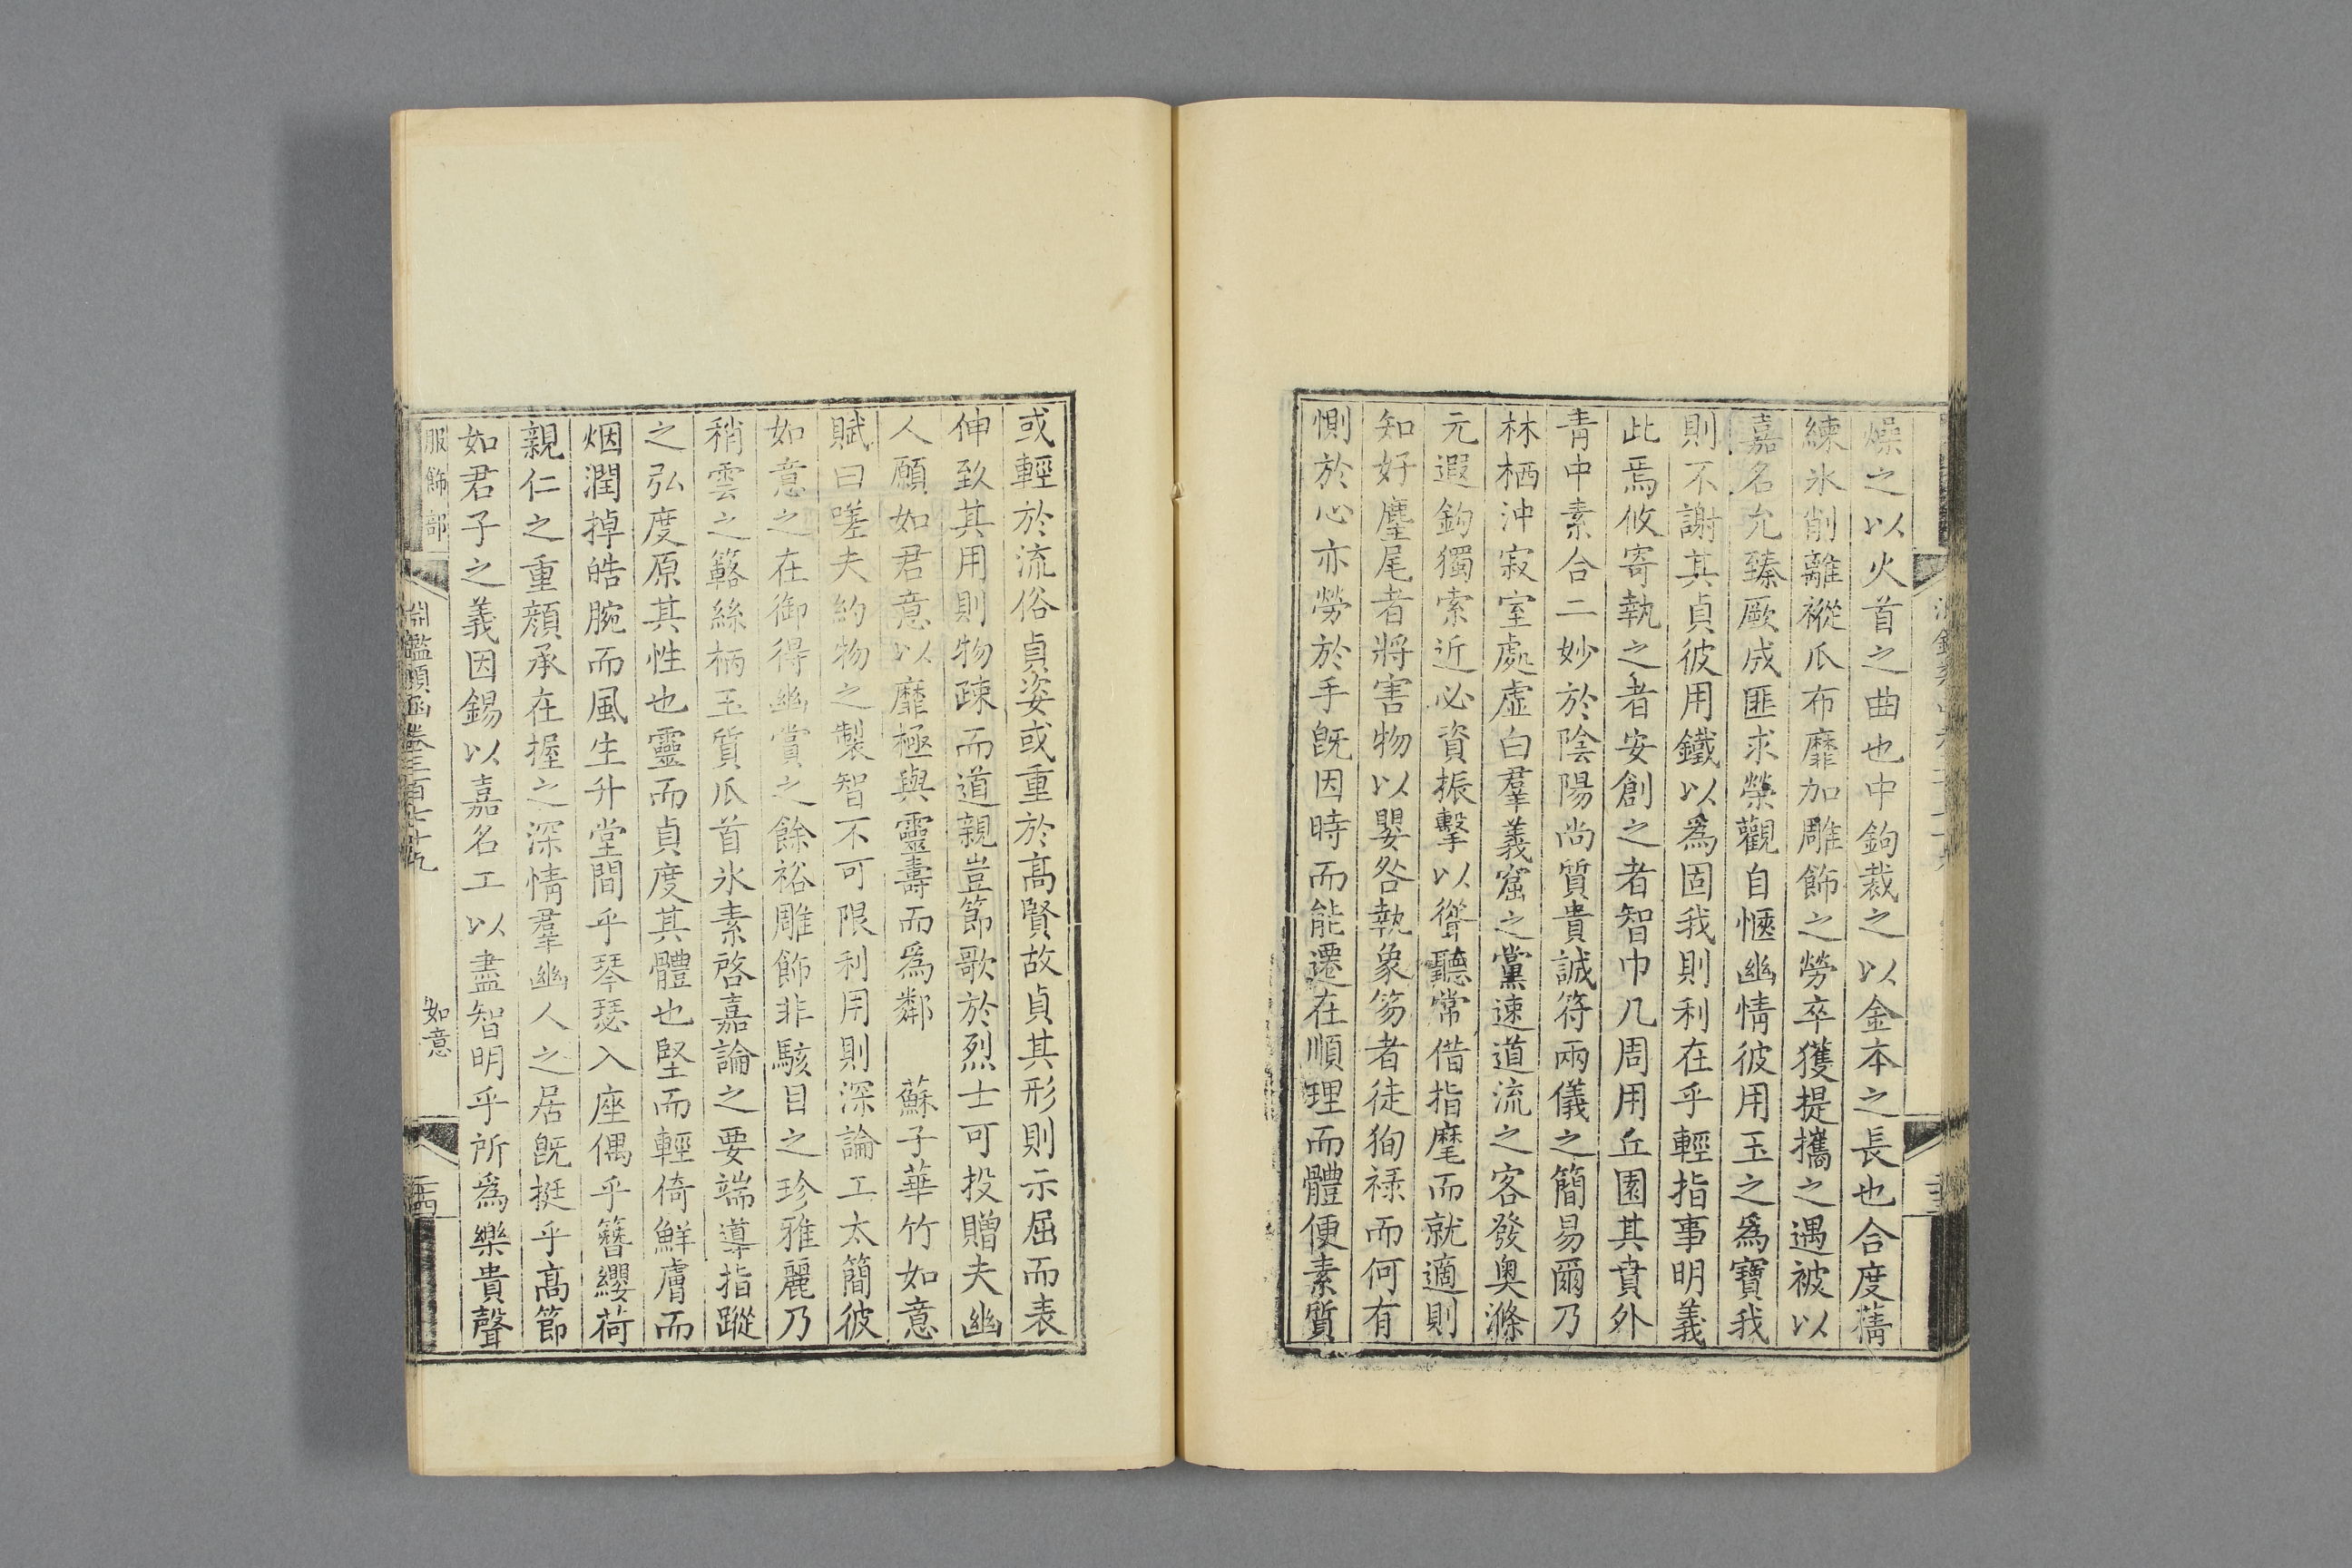 燥之以火首之曲也中鉤裁之以金本之長也合度蒨
練氷削離褷爪布靡加雕飾之勞卒獲提攜之遇被以
嘉名允臻厥成匪求榮觀自愜幽情彼用玉之爲寶我
則不謝其貞彼用鐵以爲固我則利在乎輕指事明義
此焉攸寄執之者安創之者智巾几周用丘園其賁外
靑中素合二妙於陰陽尚質貴誠符兩儀之簡易爾乃
林栖沖寂室處虛白羣義窟之黨速道流之客發奧滌
元遐鉤獨索近必資振擊以聳聽常借指麾而就適則
知好麈尾者將害物以嬰咎執象笏者徒狥祿而何有
惻於心亦勞於手旣因時而能遷在順理而體便素質
或輕於流俗貞姿或重於高賢故貞其形則示屈而表
伸致其用則物疎而道親豈節歌於烈士可投贈夫幽
人願如君意以靡極與靈壽而爲鄰 蘇子華竹如意
賦曰嗟夫約物之製智不可限利用則深論工太簡彼
如意之在御得幽賞之餘裕雕飾非駭目之珍雅麗乃
稍雲之簵絲柄玉質爪首氷素啓嘉論之要端導指蹤
之弘度原其性也靈而貞度其體也堅而輕倚鮮膚而
烟潤掉皓腕而風生升堂間乎琴瑟入座偶乎簪纓荷
親仁之重顏承在握之深情羣幽人之居旣挺乎高節
如君子之義因錫以嘉名工以盡智明乎所爲樂貴聲
服飾部 淵鑑類函卷三百七十九 如意 二十四